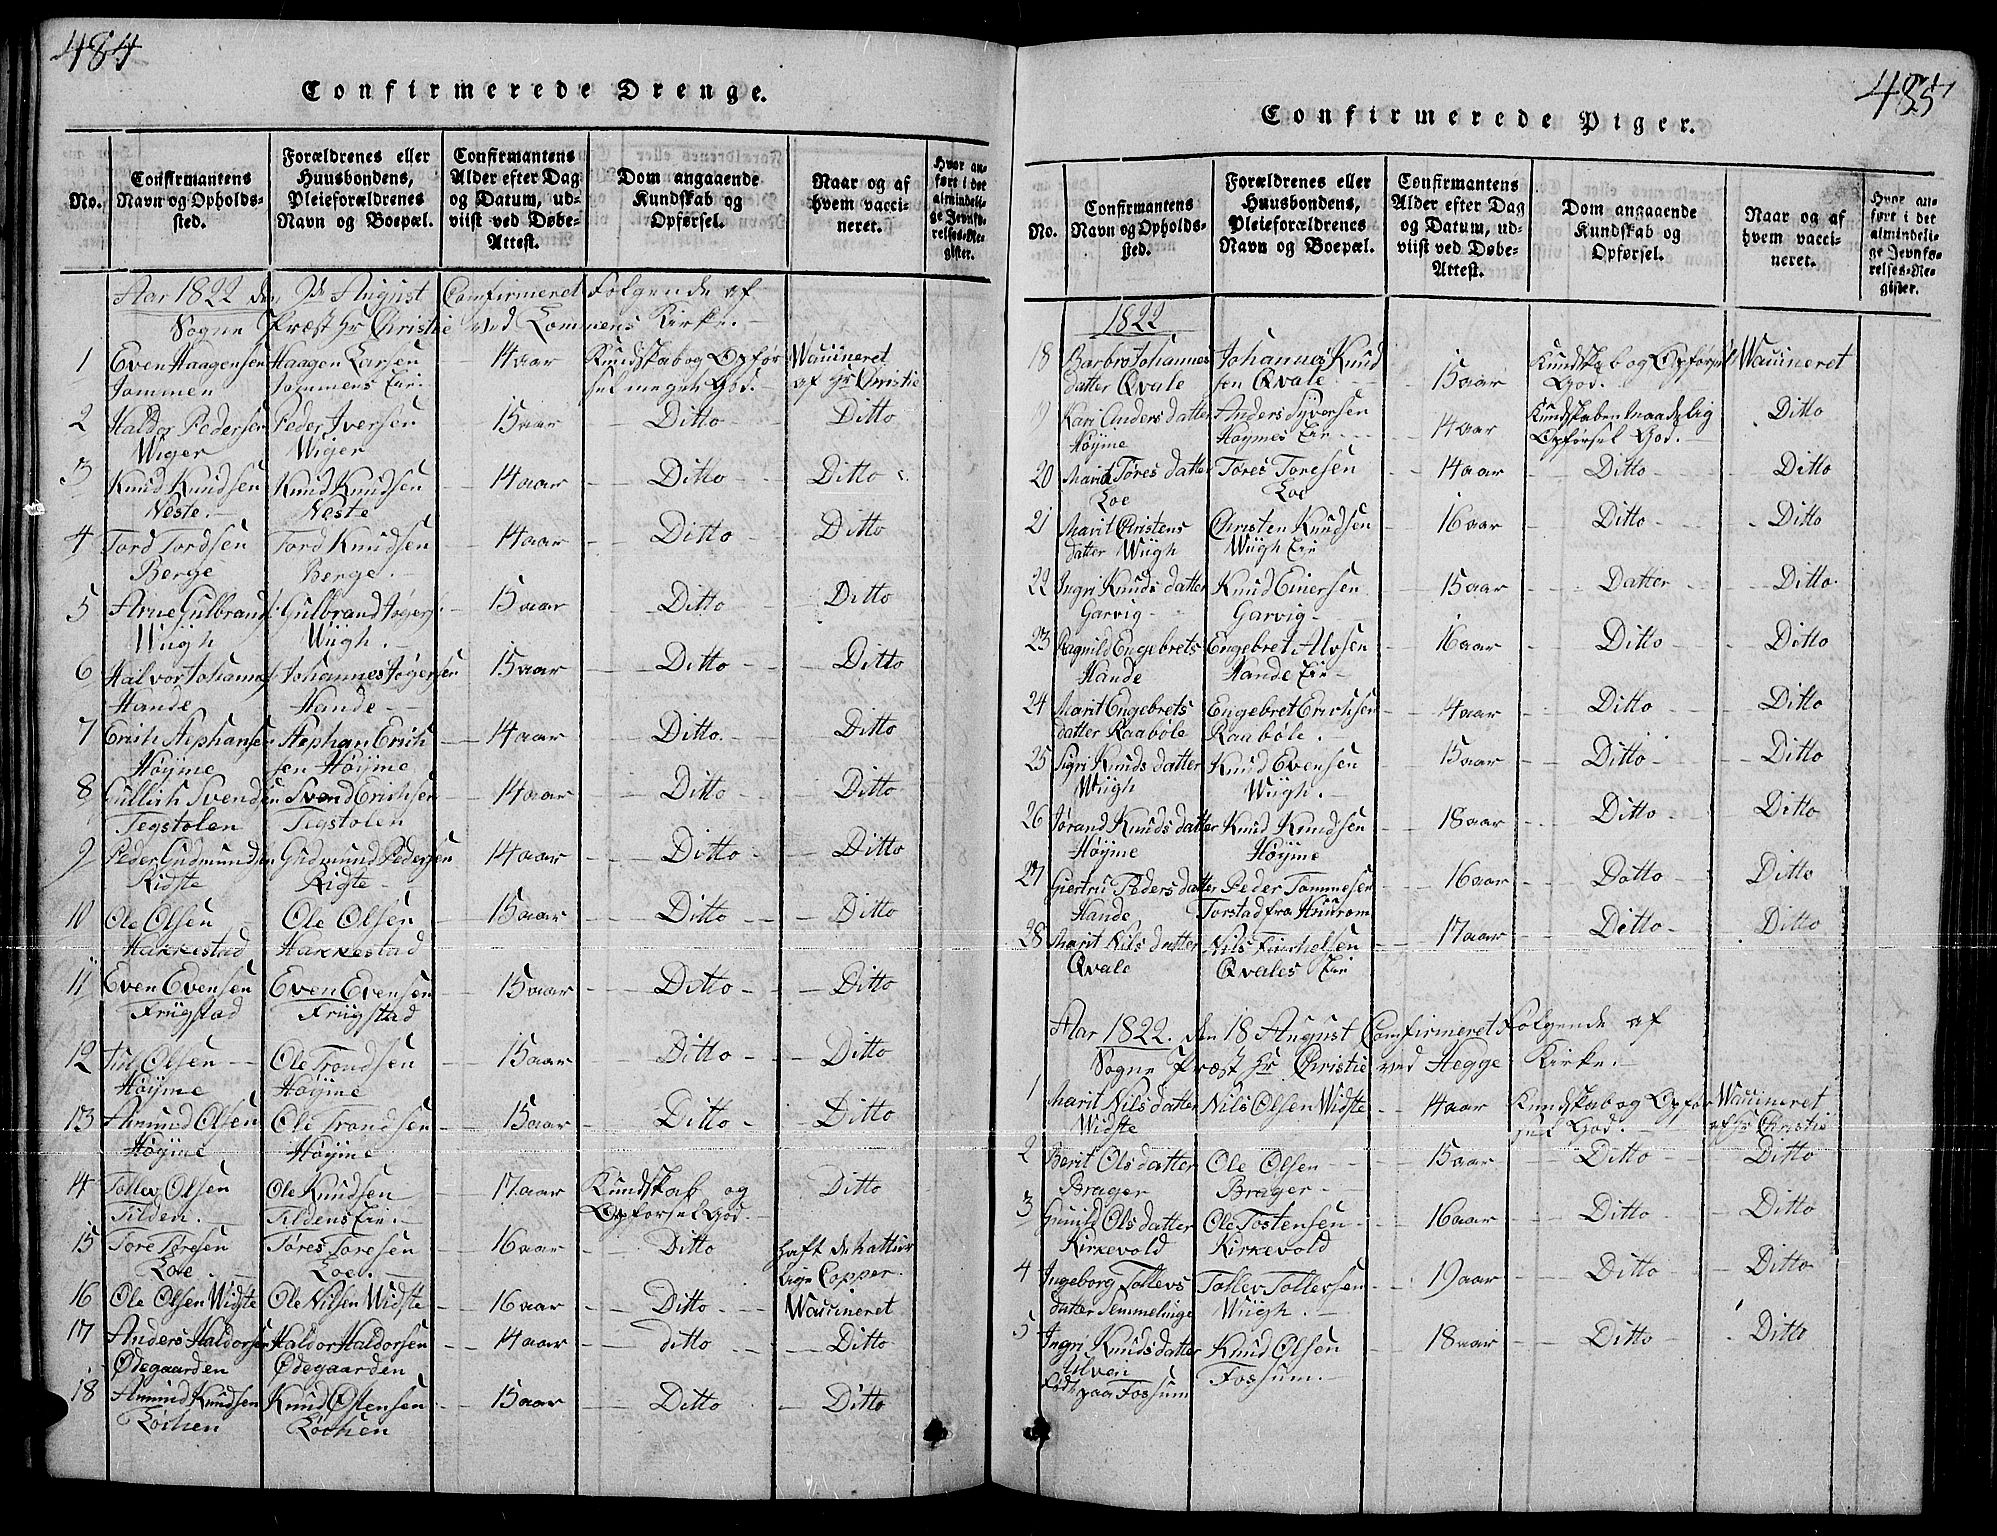 484
Confirmerede Drenge.
No.
Confirmantens Navn og Opholdssted.
Forældrenes eller Huusbondens, Pleieforældrenes Navn og Boepæl.
Confirmantens Alder efter Dag og Datum, udviist ved Døbe-Attest.
Dom angaaende Kundskab og Opførsel.
Naar og af hvem vaccineret.
Hvor anført i det almindelige Jevnførelses-Register.
Aar 1822 den August Confirmeret Følgende af
Sogne Præst Hr Christie ved Lommens Kirke.
1 Even Haagensen Haagen Larsen 14 aar Kundskab og Opfør Waccineret
Lommen Lommens Eie. sel meget God. af Hr Christie
2 Haldor Pedersen Peder Iversen 15 aar Ditto Ditto
Wiger Wiger
3 Knud Knudsen Knud Knudsen 14 aar Ditto Ditto
Neste. Neste
4 Tord Tordsen Tord Knudsen 14 aar Ditto Ditto
Berge Berge.
5 Arne Gulbrands. Gulbrand Jøgers. 15 aar Ditto Ditto
Wiigh Wiigh.
6 Halvor Johannes. Johannes Jøgersen 15 aar Ditto Ditto
Hande Hande
7 Erich Stephansen Stephan Erich 14 aar Ditto Ditto
Høyme sen Høyme
8 Gullich Svendsen Svend Erichsen 14 aar Ditto Ditto
Tegstolen Tegstolen
9 Peder Gudmunden Gudmund Pedersen 14 aar Ditto Ditto
Ridste Rigte
10 Ole Olsen Ole Olsen 15 aar Ditto Ditto
Hakkestad Hakkestad
11 Even Evensen Even Evensen 15 aar Ditto Ditto
Frugstad Frugstad
12 Olsen Ole Trondsen 15 aar Ditto Ditto
Høyme Høyme
13 Amund Olsen Ole Trondsen 15 aar Ditto Ditto
Høyme Høyme
14 Tollev Olsen Ole Knudsen 17 aar Kundskab og Ditto
Tilden. Tildens Eie. Opførsel God.
15 Tore Toresen Tøres Toresen 16 aar Ditto Haft de Nattur
Loe. Loe. lige Copper.
16 Ole Olsen Widste Ole Nilsen Widste 16 aar Ditto Waccineret
17 Anders Haldorsen Haldor Haldorsen 14 aar ditto Ditto
Ødegaarden Ødegaarden
18 Amund Knudsen Knud Ostensen 15 aar Ditto Ditto
Løchen Løchen
485
Confirmerede Piger.
No.
Confirmantens Navn og Opholdssted.
Forældrenes eller Huusbondens, Pleieforældrenes Navn og Boepæl.
Confirmantens Alder efter Dag og Datum, udviist ved Døbe-Attest.
Dom angaaende Kundskab og Opførsel.
Naar og af hvem vaccineret.
Hvor anført i det almindelige Jevnførelses-Register.
1822
18 Barbro Johannes Johannes Knud 15 aar Kundskab og Opførsel Waccineret
datter Qvale sen Qvale God.
19 Kari Andersdatter Anders Syversen 14 aar Kundskaben maadelig Ditto
Høyme Høymes Eie Opførsel God.
20 Maria Tøres datter Tøres Toresen 14 aar Ditto Ditto
Loe Loe
21 Marit Christens Christen Knudsen 16 aar Ditto Ditto
datter Wiigh Wiigh Eie
22 Ingri Knuds datter Knud Einersen 15 aar Datter Ditto.
Garvig Garvig
23 Ragnild Engebrets Engebret Alvsen 16 aar Ditto Ditto
Hande Hande Eie
24 Marit Engebrets Engebret Erichsen 14 aar Ditto Ditto
datter Raabøle Raabøle.
25 Sigri Knuds datter Knud Evensen 15 aar Ditto Ditto
Wiigh Wiigh.
26 Jørand Knuds datter Knud Knudsen 18 aar Ditto Ditto
Høyme Høyme
27 Giertru Peders datter Peder Tommesen 16 aar Dotto Ditto
Hande Torstad fra Hurrom
28 Marit Nils datter Nils Finchelsen 17 aar Ditto Ditto
Qvale Qvales Eie
Aar 1822. den 18 August Confirmeret Følgende af
Sogne Præst Hr Christie ved Hegge Kirke.
1 Marit Nils datter Nils Olsen Widste 14 aar Kundskab og Opfør Waccineret
Widste sel God. af Hr Christie
2 Berit Ols datter Ole Olsen 15 aar Ditto Ditto
Brager Brager
3 Gunild Ols datter Ole Tostensen 16 aar Ditto Ditto
Kirkevold Kirkevold
4 Ingeborg Tollevs Tollev Tollevsen 19 aar Ditto Ditto
datter Semmelinge Wiigh.
5 Ingri Knuds datter Knud Olsen 18 aar Ditto Ditto
Ulven Fossum.
Født paa Fossum